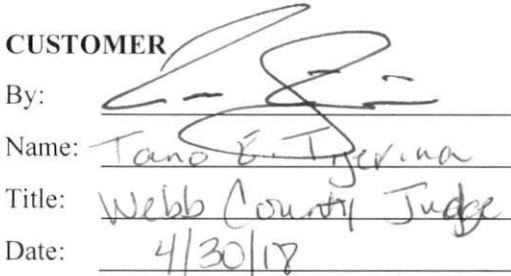 CUSTOMER
By:
Name: Tano E. Tijerina
Title: Webb County Judge
Date: 4/30/18